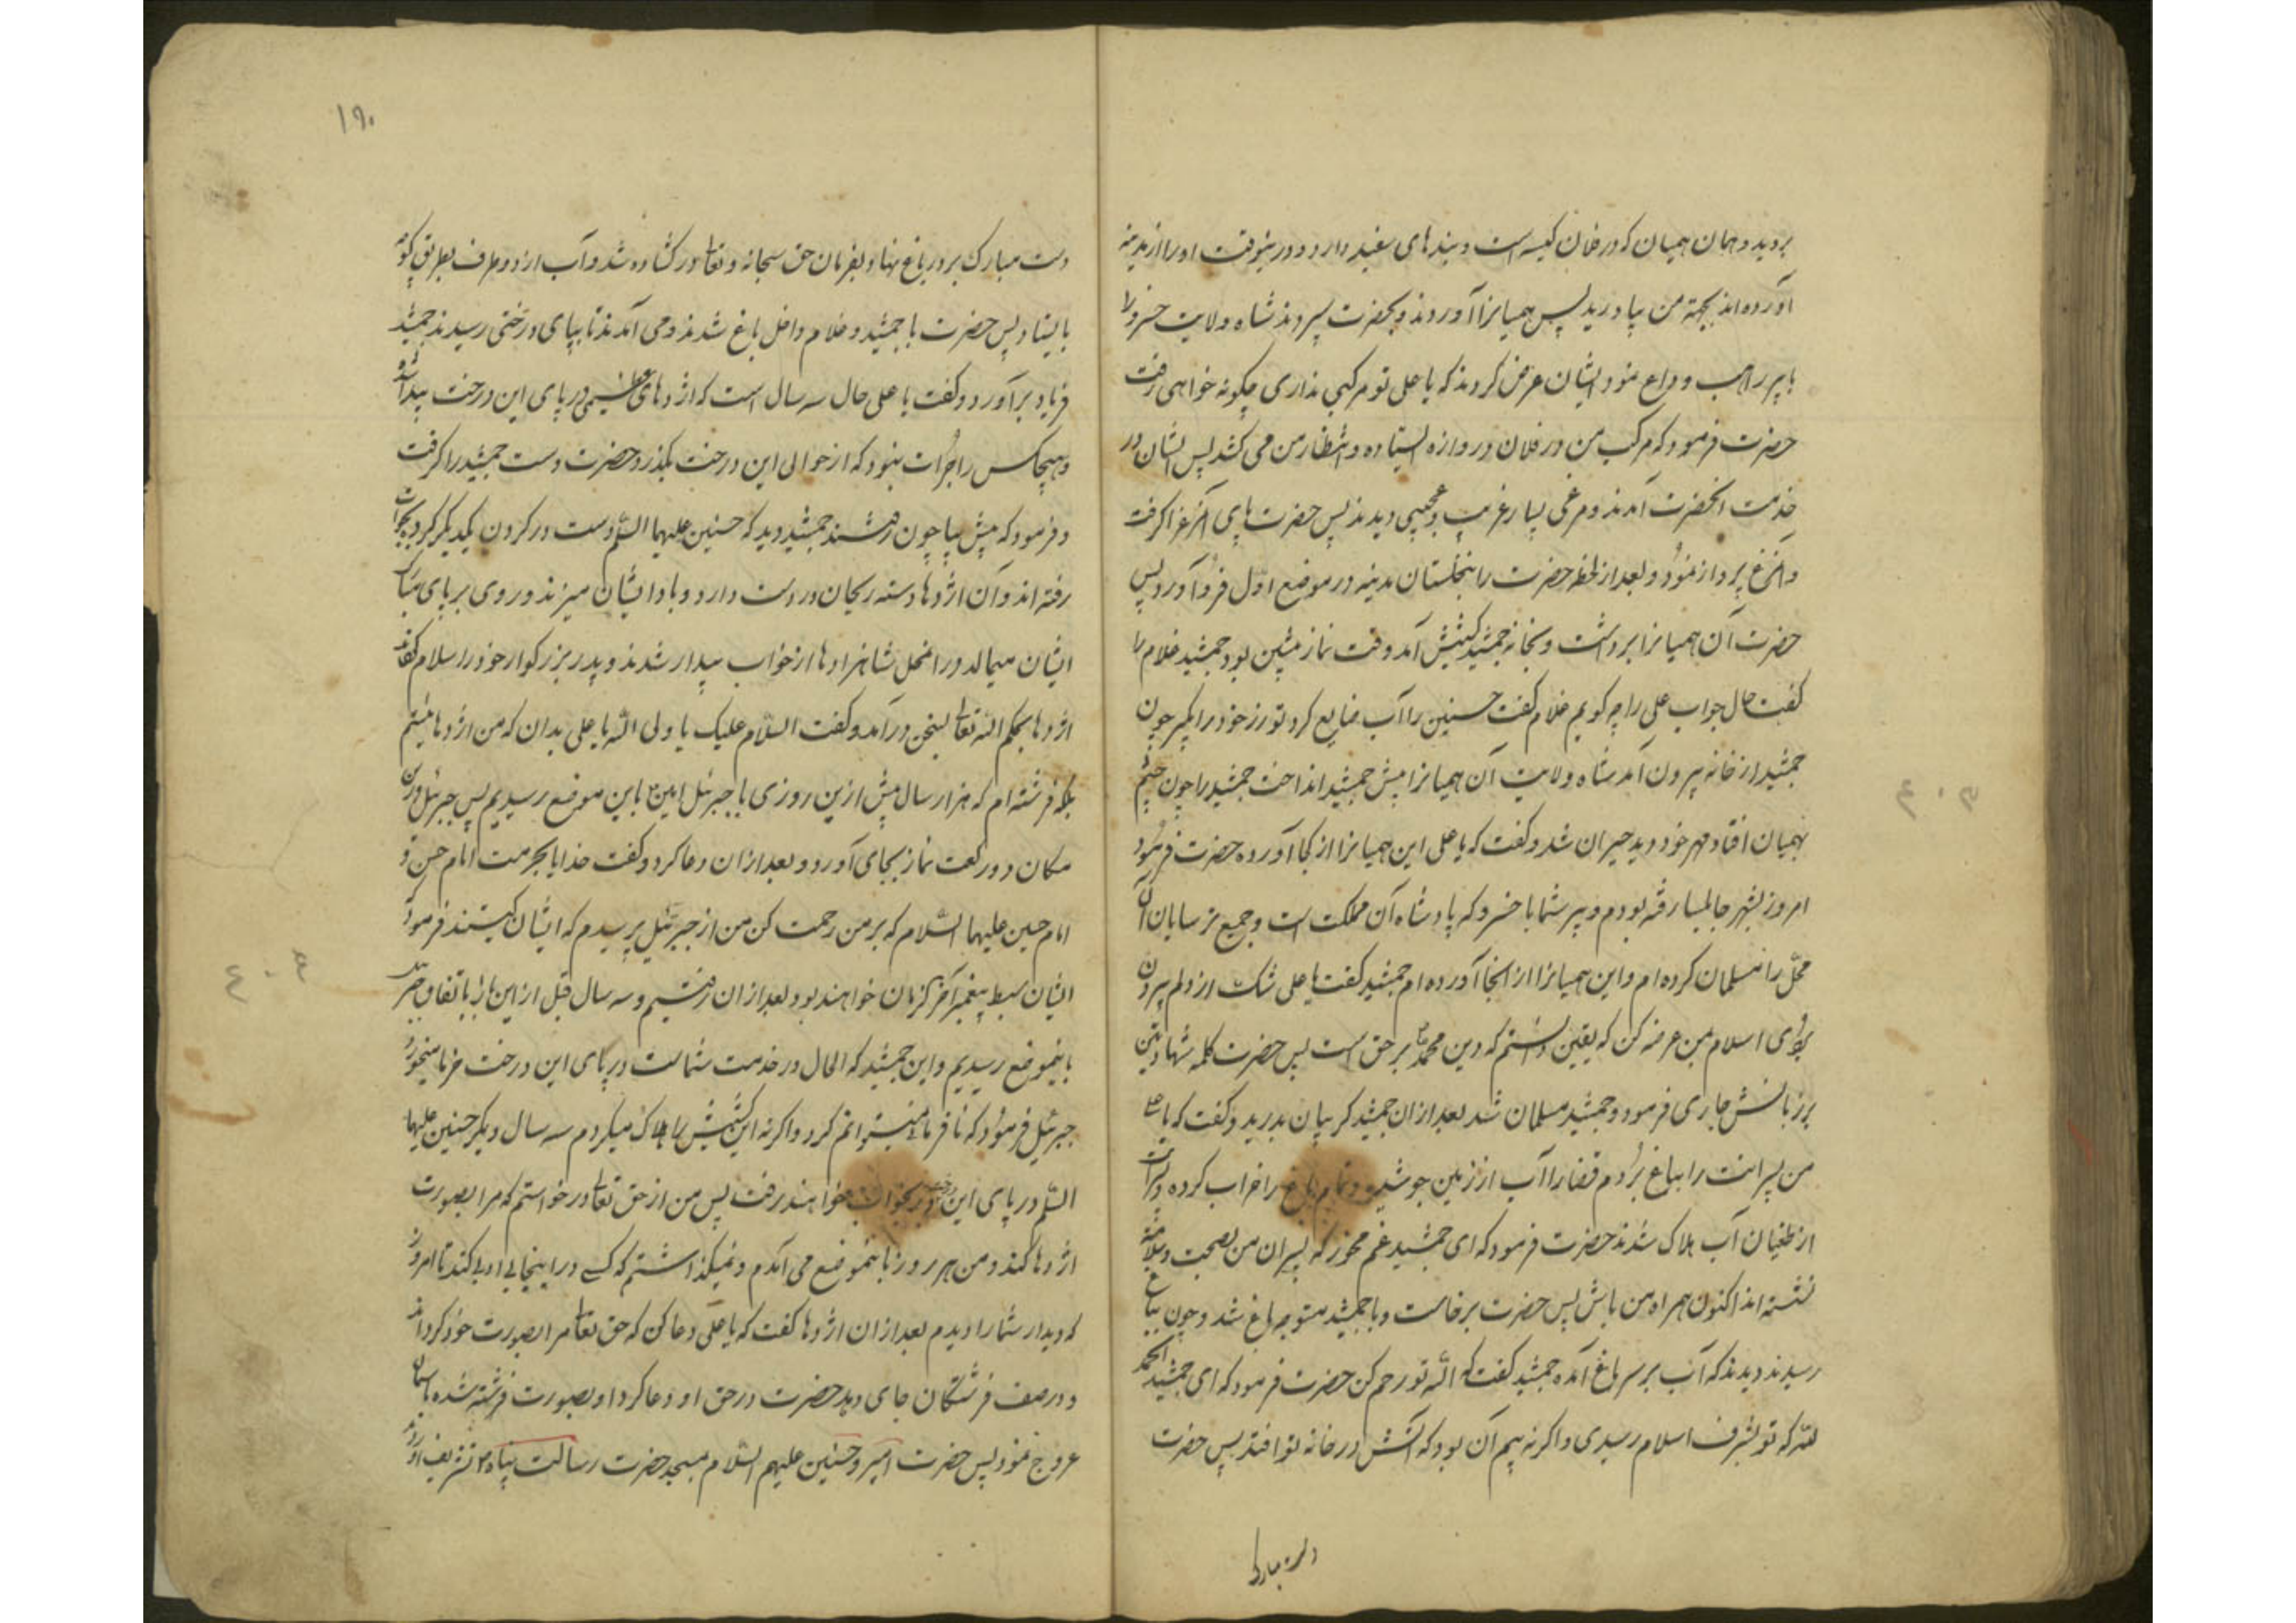 بروید و همان همیان که در فلان کیسه است و بندهای سفید دارد و درینوقت او را از مدینه
آورده‌اند بجهة من بیاورید پس همیانرا آوردند و بحضرت سپردند شاه ولایت خسرو را
با پیر راهب وداع نمود ایشان عرض کردند که یا علی تو مرکبی نداری چگونه خواهی رفت
حضرت فرمود که مرکب من در فلان دروازه ایستاده و انتظار من می کشد پس ایشان در
خدمت آنحضرت آمدند و مرغی بسیار غریب و عجیبی دیدند پس حضرت پای آنمرغرا گرفت
و آنمرغ پرواز نمود و بعد از لحظه حضرت را بنخلستان مدینه در موضع اول فرود آورد پس
حضرت آن همیانرا برداشت و بخانه جمشید آمد وقت نماز پیشین بود جمشید غلام را
گفت حال جواب علی را چه گویم غلام گفت حسنین را آب ضایع کرد تو زر خود را بگیر چون
جمشید از خانه بیرون آمد شاه ولایت آن همیانرا پیش جمشید انداخت جمشید را چون چشم
بهمیان افتاد مهر خود دید حیران شد و گفت که یا علی این همیانرا از کجا آورده حضرت فرمود
امروز بشهر جابلسا رفته بودم و پسر شما با خسرو که پادشاه آن مملکت است و جمیع ترسایان آن
محل را مسلمان کرده‌ام و این همیانرا از آنجا آورده‌ام جمشید گفت یا علی شک از دلم بیرون
اسلام بمن عرضه کن که یقین دانستم که دین محمد بر حق است پس حضرت کلمه شهادتین
بر زبانش جاری فرمود و جمشید مسلمان شد بعد از آن جمشید گریبان بدرید و گفت که یا علی
من پسرانت را بباغ بردم قضا را آب از زمین جوشیده و تمام باغ را خراب کرده و پسرانت
از طغیان آب هلاک شدند حضرت فرمود که ای جمشید غم مخور که پسران من بصحت و سلامت
نشسته‌اند اکنون همراه من باش پس حضرت برخاست و با جمشید متوجه باغ شد و چون بباغ
رسیدند دیدند که آب بر سر باغ آمده جمشید گفت که الله تو رحم کن حضرت فرمود که ای جمشید الحمد
لله که تو بشرف اسلام رسیدی و اگر نه بیم آن بود که آتش در خانه تو افتد پس حضرت
دست مبارک
۱۹۰
دست مبارک بر در باغ نهاد و بفرمان حق سبحانه و تعالی در گشاده شد و آب از دو طرف بطریق کوه
بایستاد پس حضرت با جمشید و غلام داخل باغ شدند و می آمدند تا بپای درختی رسیدند جمشید
فریاد برآورد و گفت یا علی حال سه سال است که اژدهای عظیمی در پای این درخت پیدا شده
و هیچکس را جرأت نبود که از حوالی این درخت بگذرد حضرت دست جمشید را گرفت
و فرمود که پیش بیا چون رفتند جمشید دید که حسنین علیهما السلم دست در گردن یکدیگر کرده بخواب
رفته‌اند و آن اژدها دسته ریحان در دست دارد و باد ایشان میزند و روی بر پای مبارک
ایشان میمالد در انمحل شاهزادها از خواب بیدار شدند و پدر بزرگوار خود را سلام گفتند
اژدها بحکم الله تعالی بسخن درآمد و گفت السلام علیک یا ولی الله یا علی بدان که من اژدها نیستم
بلکه فرشته‌ام که هزار سال پیش ازین روزی با جبرئیل امین باین موضع رسیدیم پس جبرئیل درین
مکان دو رکعت نماز بجای آورد و بعد از آن دعا کرد و گفت خدایا بحرمت امام حسن و
امام حسین علیهما السلام که بر من رحمت کن من از جبرئیل پرسیدم که ایشان کیستند فرمود
ایشان سبط پیغمبر آخر الزمان خواهند بود بعد از آن رفتیم و سه سال قبل از این باز باتفاق جبرئیل
باینموضع رسیدیم و این جمشید که الحال در خدمت شماست در پای این درخت خرما میخورد
جبرئیل فرمود که نافرمانی نمیتوانم کرد و اگر نه این را هلاک میکردم سه سال دیگر حسنین علیهما
السلم در پای این درخت بخواب خواهند رفت پس من از حق تعالی درخواستم که مرا بصورت
اژدها کند و من هر روز باینموضع می آمدم و نمیگذاشتم که کسی در اینجا بی ادبی کند تا امروز
که دیدار شما را دیدم بعد از آن اژدها گفت که یا علی دعا کن که حق تعالی مرا بصورت خود گرداند
و در صف فرشتگان جای دهد حضرت در حق او دعا کرد او بصورت فرشته شده بآسمان
عروج نمود پس حضرت امیر و حسنین علیهم السلام بمسجد حضرت رسالت پناه تشریف آوردند